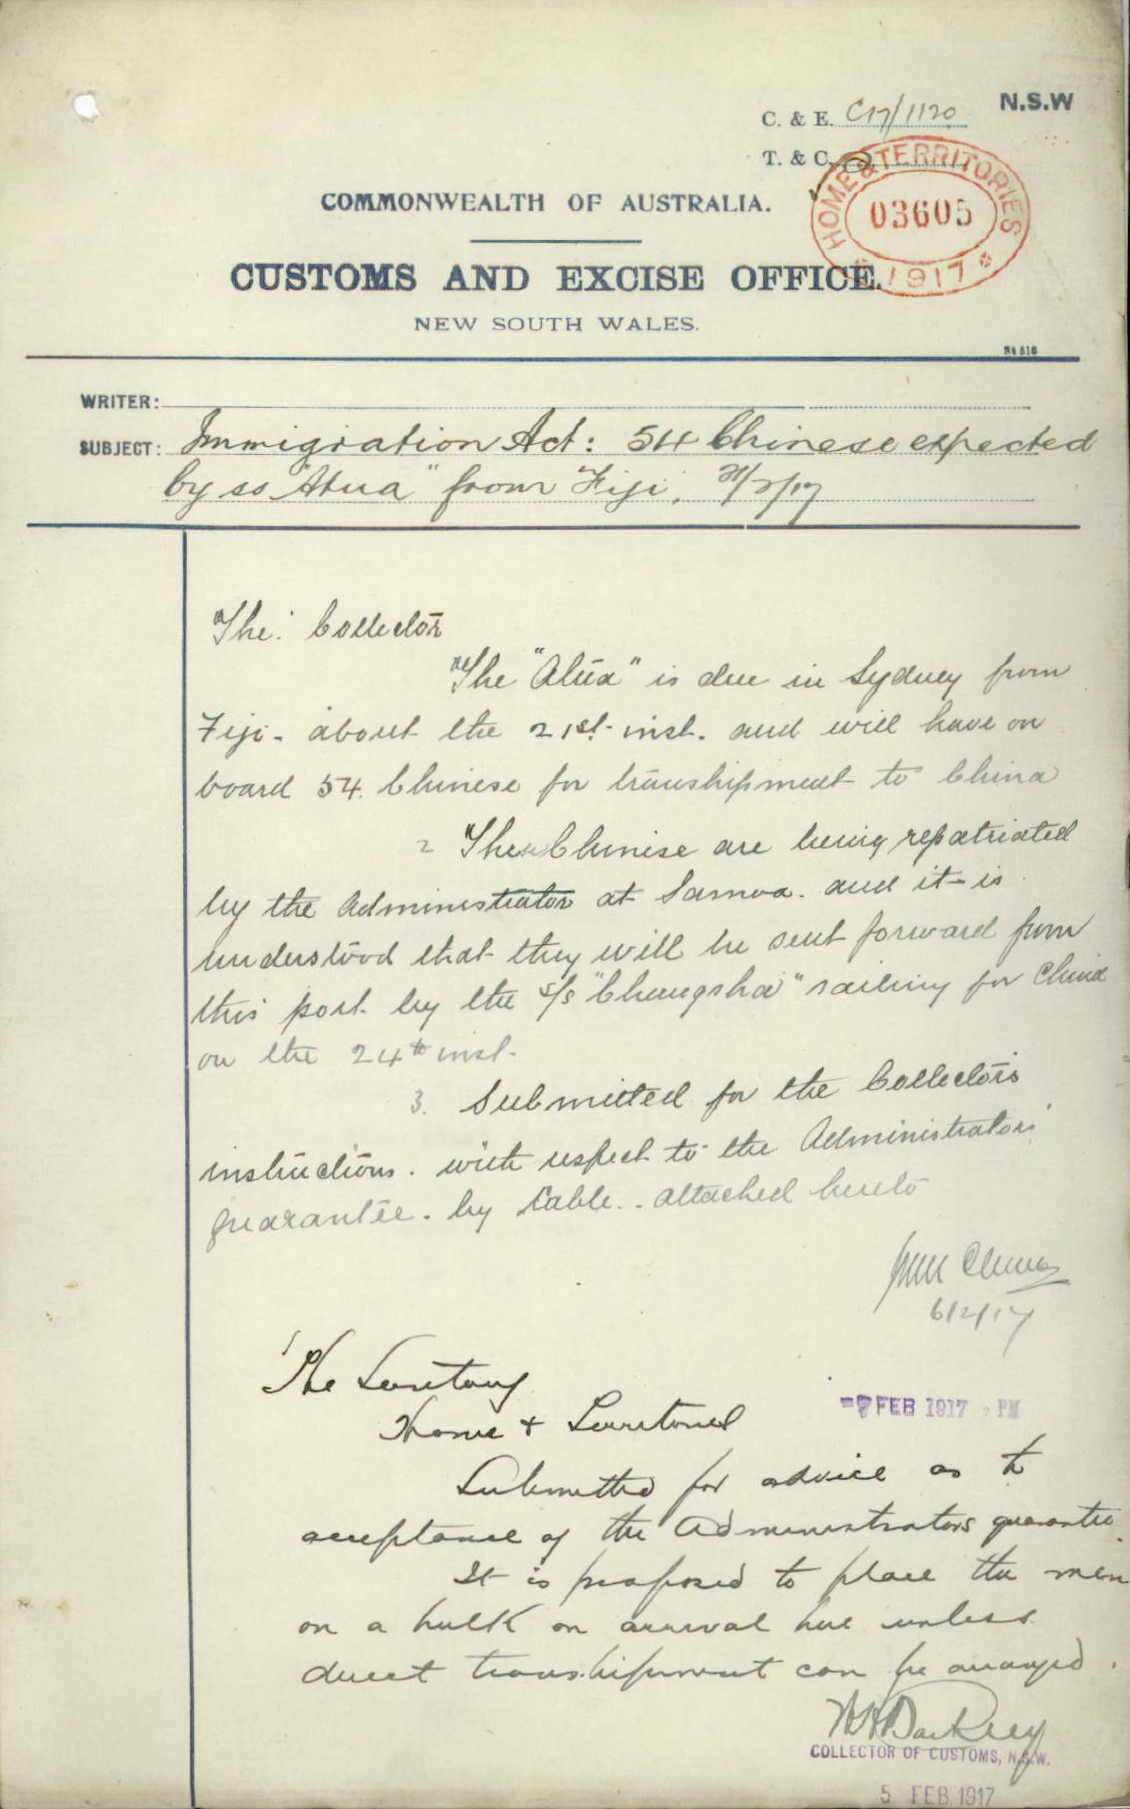 N.S.W
C. & E. C17/1120
T. & C.
HOME & TERRITORIES
03605
1917
COMMONWEALTH OF AUSTRALIA.
CUSTOMS AND EXCISE OFFICE.
NEW SOUTH WALES.
WRITER:
SUBJECT: Immigration Act: 54 Chinese expected
by ss "Atua" from Fiji, 21/2/17
The Collector
The "Atua" is due in Sydney from
Fiji - about the 21st inst. and will have on
board 54 Chinese for transhipment to China
2 These Chinese are being repatriated
by the Administrator at Samoa. and it is
understood that they will be sent forward from
this port by the s/s "Changsha" sailing for China
on the 24th inst.
3. Submitted for the Collectors
instructions. with respect to the Administrators
guarantee. by Cable.. attached hereto
6/2/17
The Secretary
Home & Territories
FEB 1917 PM
Submitted for advice as to
acceptance of the Administrators guarantee.
It is proposed to place the men
on a hulk on arrival here unless
direct transhipment can be arranged.
W H Barkley
COLLECTOR OF CUSTOMS, N.S.W.
5 FEB 1917